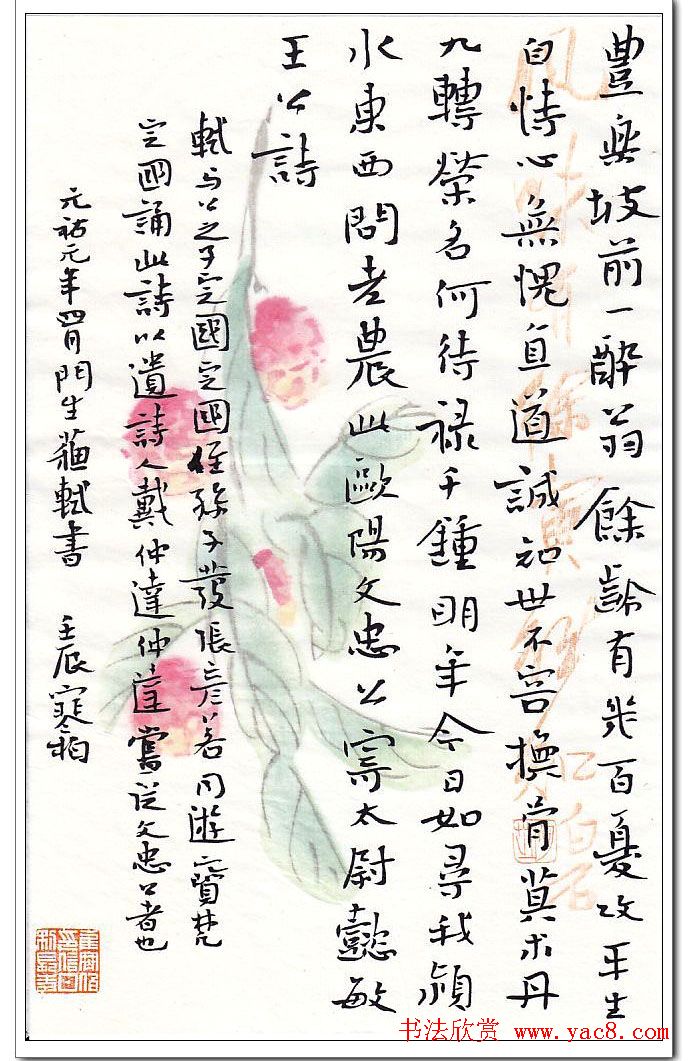 豊樂坡前一醉翁餘齡有幾百憂攻平生
自恃心無愧直道誠知世不容換骨莫求丹
九轉榮名何待祿千鍾明年今日如尋我潁
水東西問老農此歐陽文忠公寄太尉懿敏
王公詩
軾与公之子定國定國侄孫子發張彦若同遊寶梵
定國誦此詩以遺詩人戴仲達仲達嘗從文忠公者也
元祐元年四月門生蘇軾書 壬辰寒柏
书法欣赏 www.yac8.com